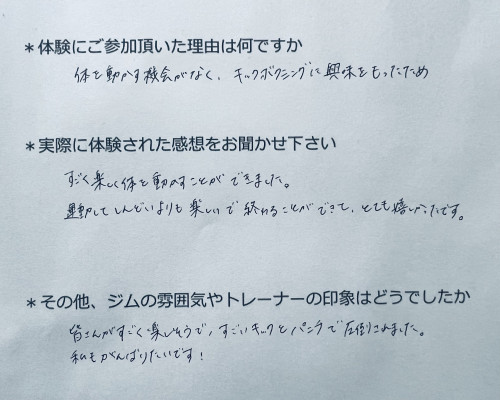 ＊体験にご参加頂いた理由は何ですか
体を動かす機会がなく、キックボクシングに興味をもったため
＊実際に体験された感想をお聞かせ下さい
すごく楽しく体を動かすことができました。
運動してしんどいよりも楽しいで終わることができて、とても嬉しかったです。
＊その他、ジムの雰囲気やトレーナーの印象はどうでしたか
皆さんがすごく楽しそうで、すごいキックとパンチで圧倒されました。
私もがんばりたいです！